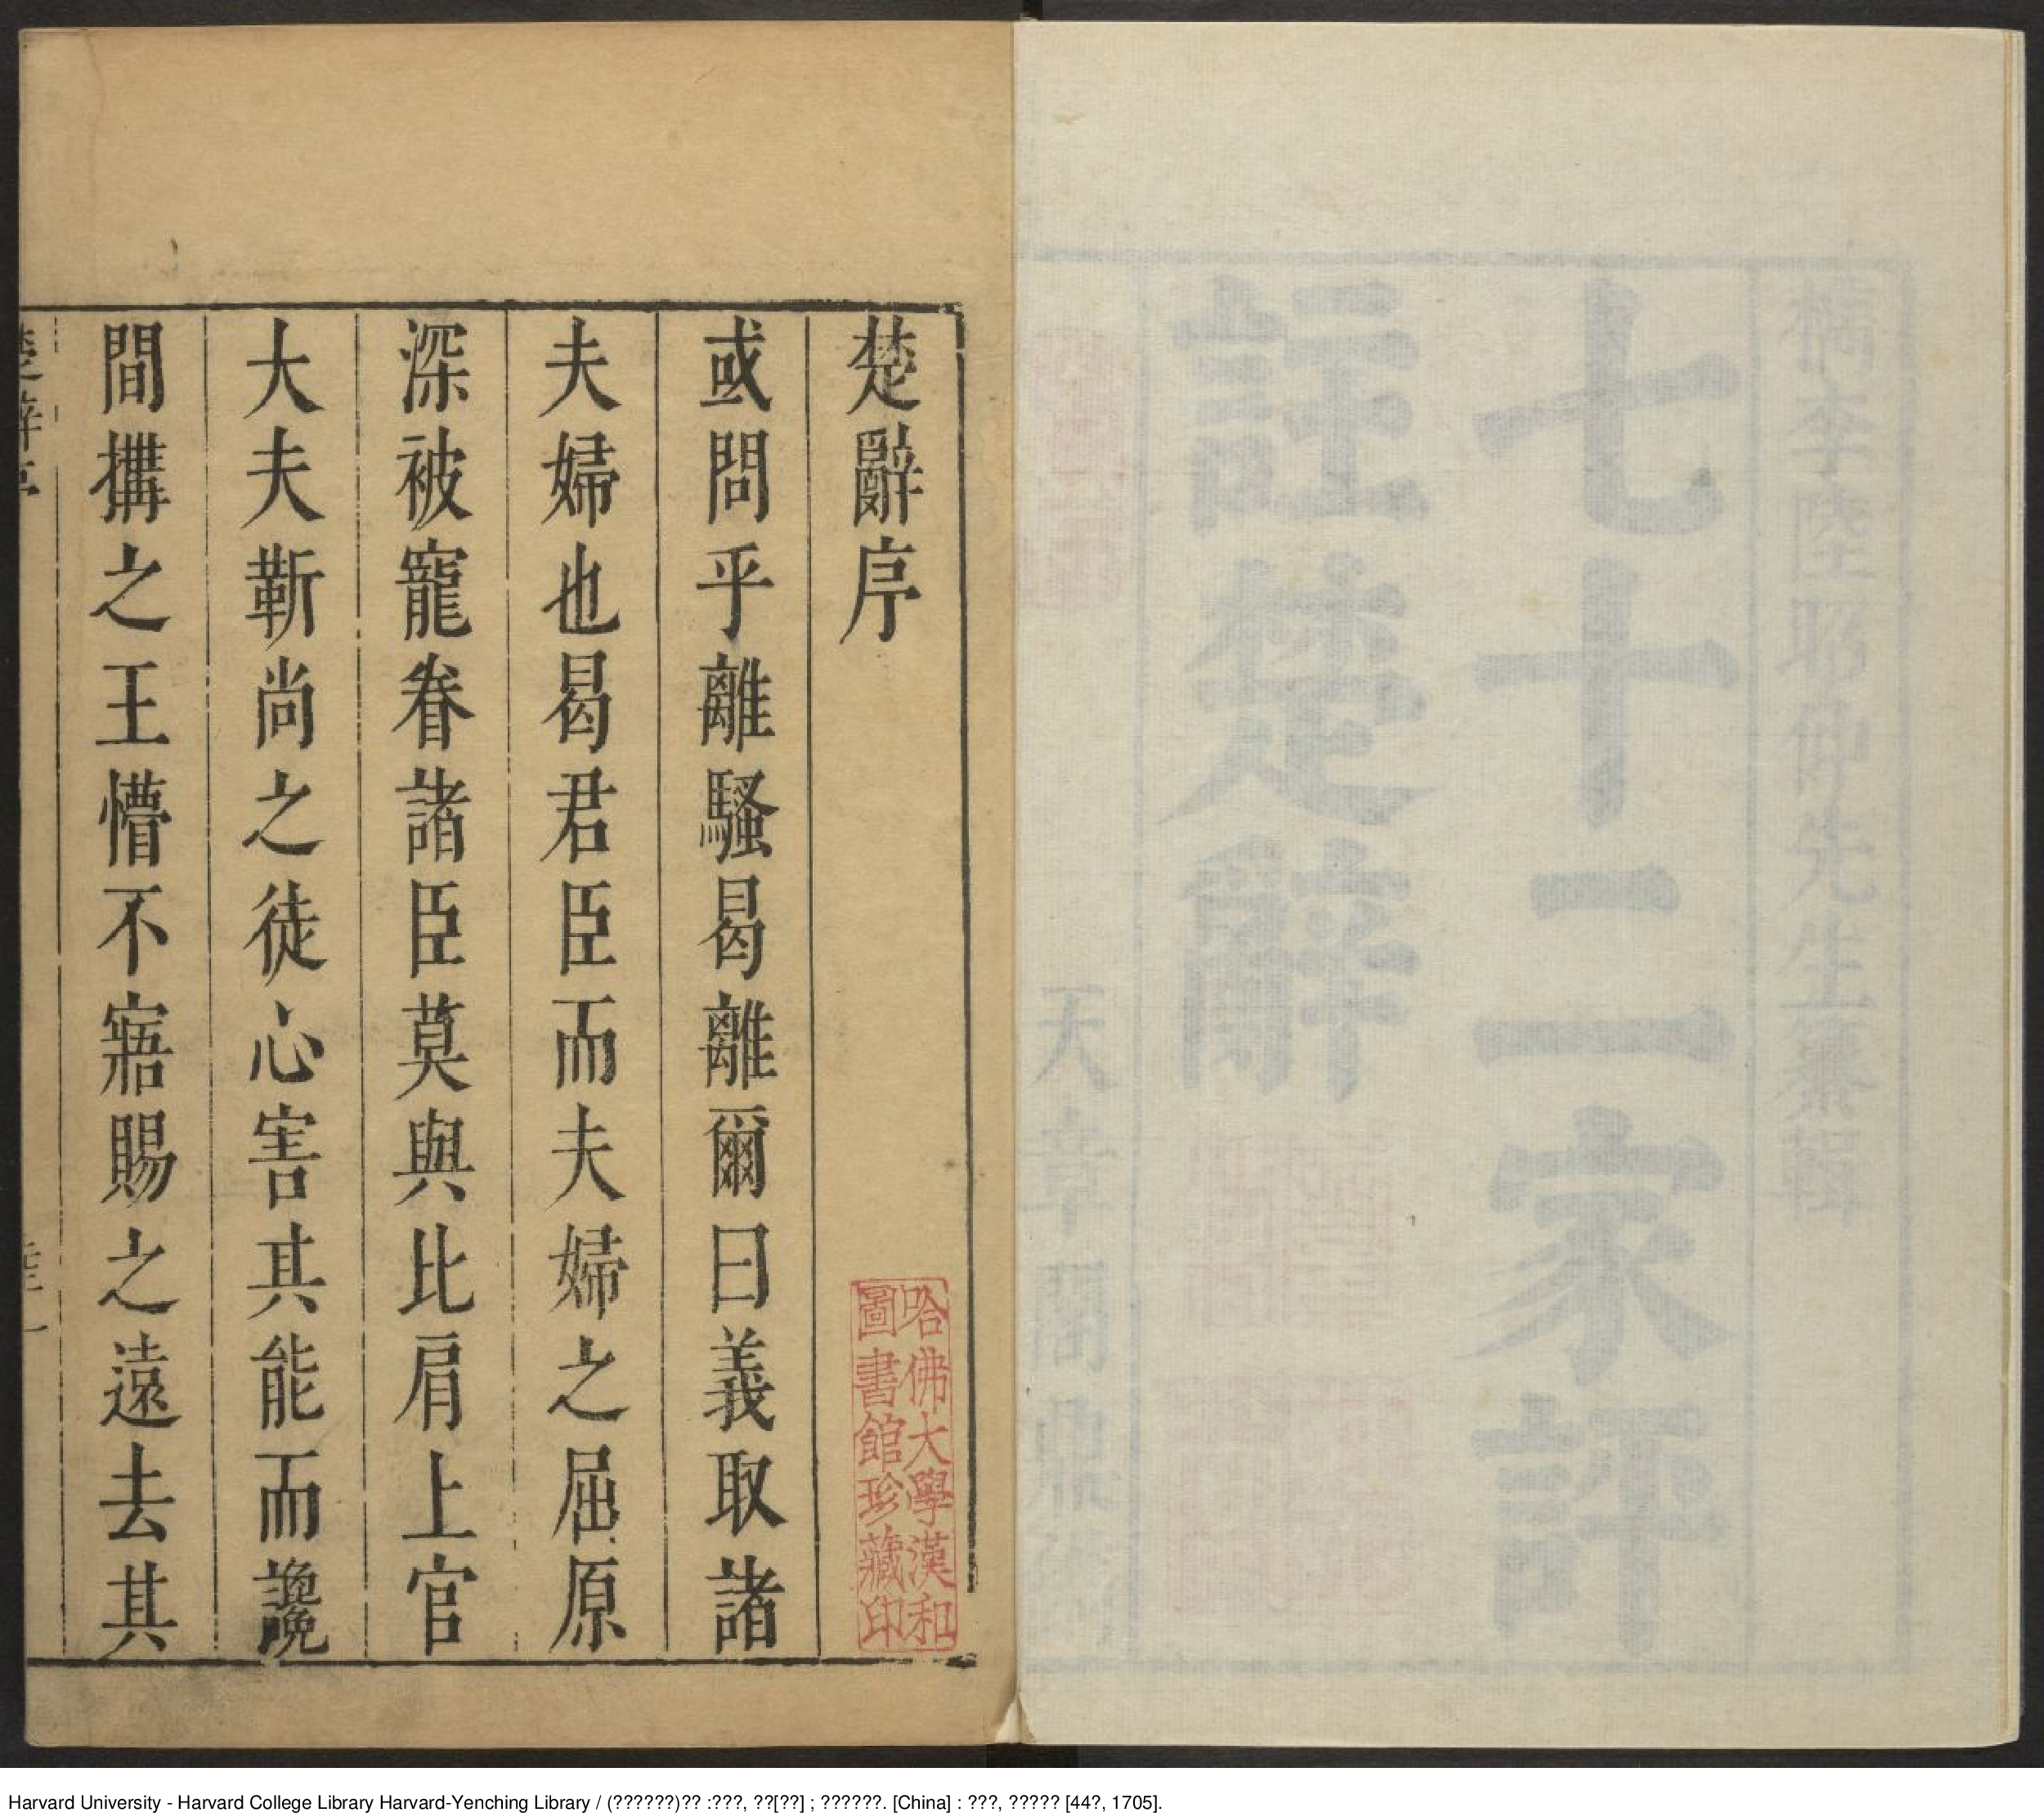 檇李陸昭仲先生纂輯
七十二家評
註楚辭
天章閣鼎
楚辭序
哈佛大學漢和
圖書館珍藏印
或問乎離騷曷離爾曰義取諸
夫婦也曷君臣而夫婦之屈原
深被寵眷諸臣莫與比肩上官
大夫靳尚之徒心害其能而讒
間搆之王懵不寤賜之遠去其
楚辭序
Harvard University - Harvard College Library Harvard-Yenching Library / (??????)?? :???, ??[??] ; ??????. [China] : ???, ????? [44?, 1705].